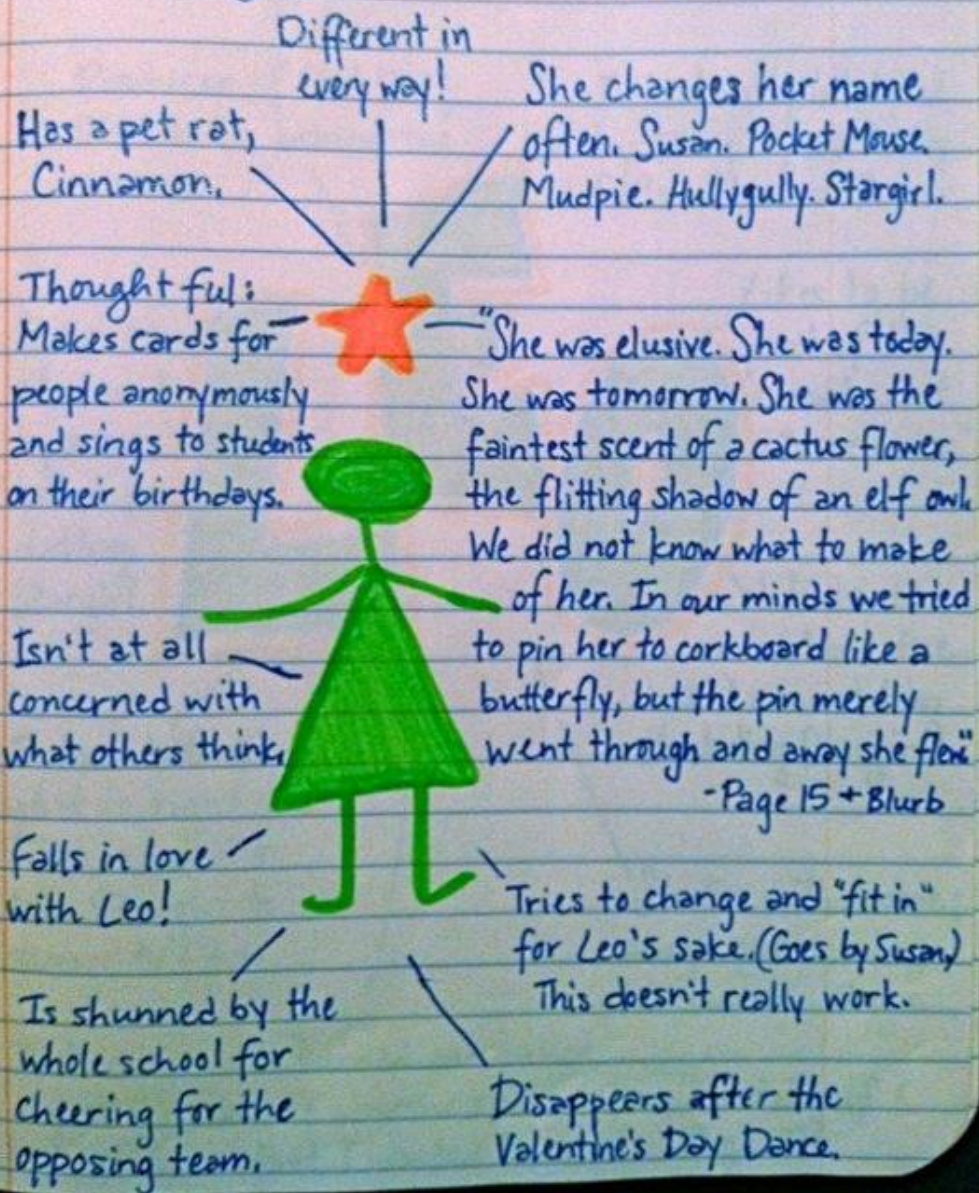 Different in
every way!
Has a pet rat,
Cinnamon.
She changes her name
often. Susan. Pocket Mouse.
Mudpie. Hullygully. Stargirl.
Thoughtful:
Makes cards for
people anonymously
and sings to students
on their birthdays.
"She was elusive. She was today.
She was tomorrow. She was the
faintest scent of a cactus flower,
the flitting shadow of an elf owl.
We did not know what to make
of her. In our minds we tried
to pin her to corkboard like a
butterfly, but the pin merely
went through and away she flew."
-Page 15 + Blurb
Isn't at all
concerned with
what others think.
Falls in love
with Leo!
Tries to change and "fit in"
for Leo's sake. (Goes by Susan.)
This doesn't really work.
Is shunned by the
whole school for
cheering for the
opposing team.
Disappears after the
Valentine's Day Dance.